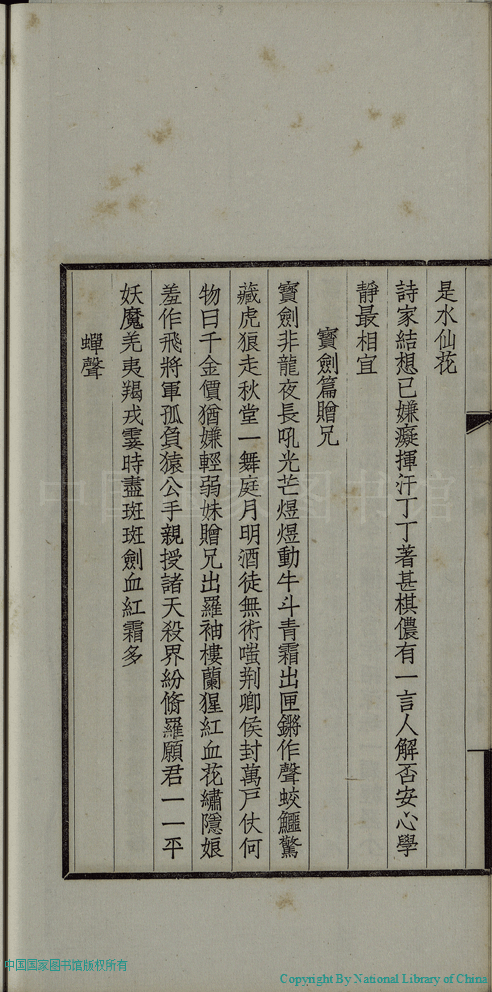 是水仙花
詩家結想已嫌癡揮汗丁丁著甚棋儂有一言人解否安心學
靜最相宜
寶劍篇贈兄
寶劍非龍夜長吼光芒煜煜動牛斗青霜出匣鏘作聲蛟鱷驚
藏虎狼走秋堂一舞庭月明酒徒無術嗤荆卿侯封萬戶仗何
物曰千金價猶嫌輕弱妹贈兄出羅袖樓蘭猩紅血花繡隱娘
羞作飛將軍孤負猿公手親授諸天殺界紛脩羅願君一一平
妖魔羌夷羯戎霎時盡斑斑劍血紅霜多
蟬聲
中国国家图书馆
中国国家图书馆版权所有
Copyright By National Library of China